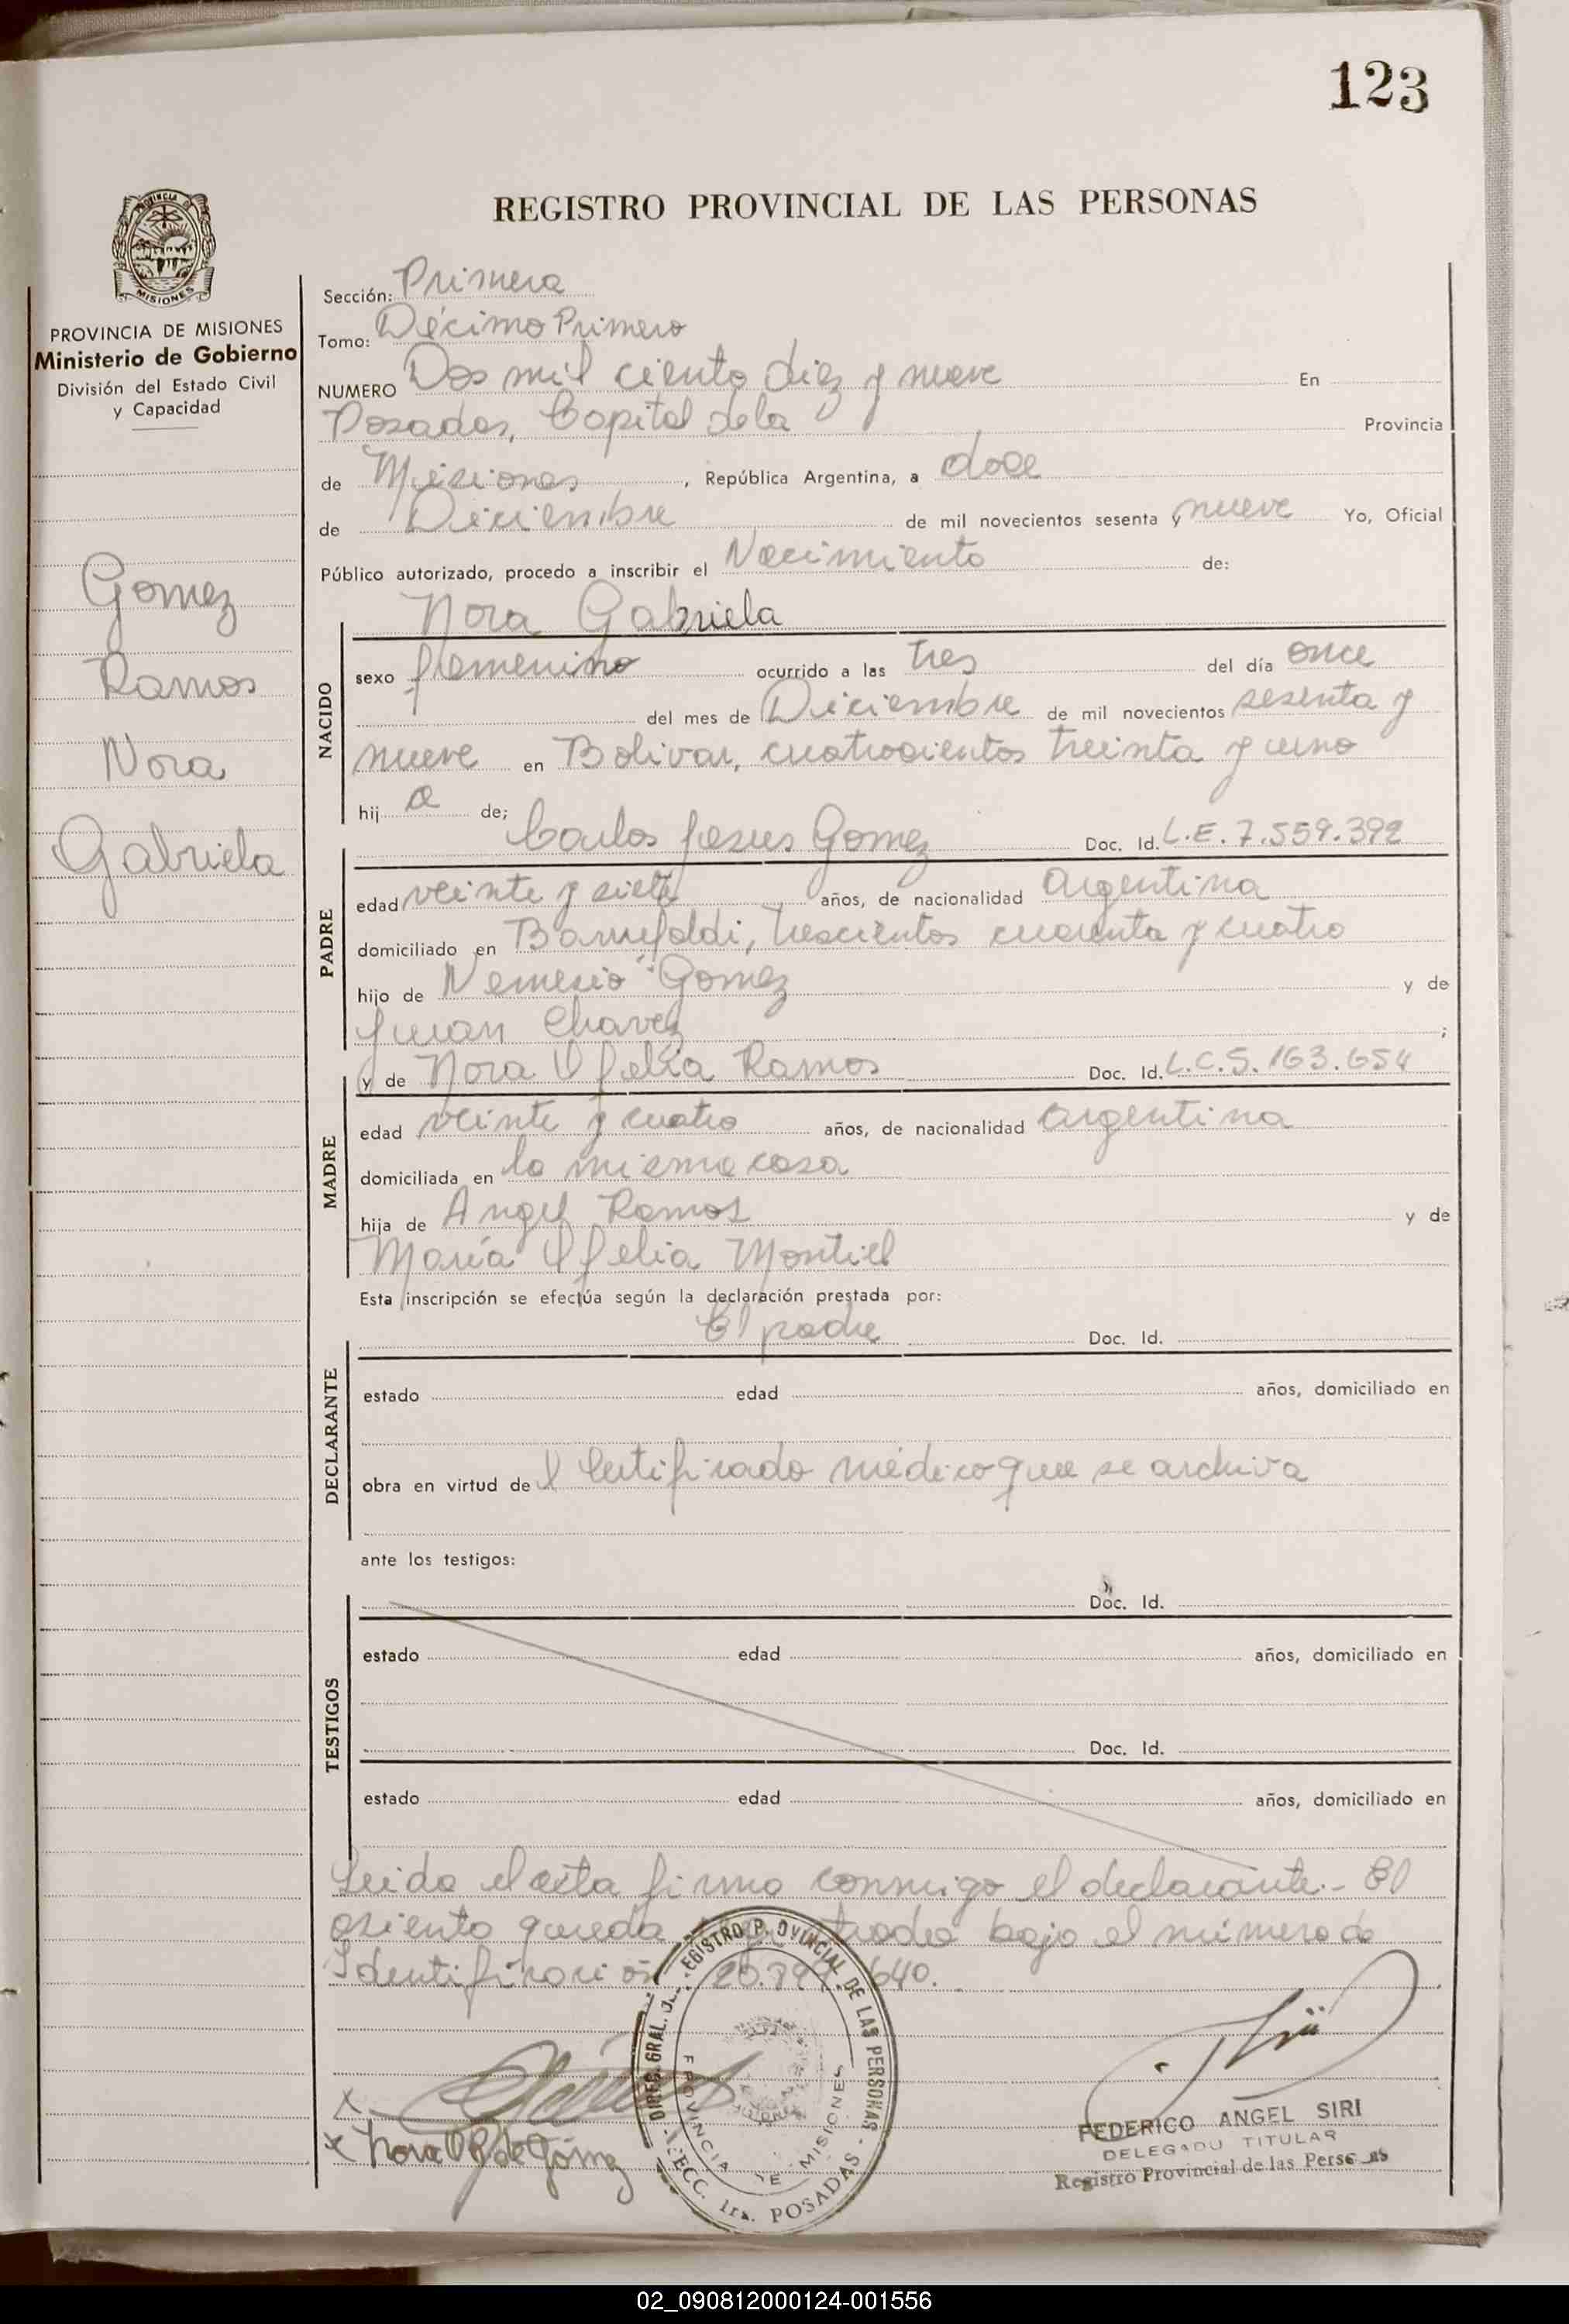 123
REGISTRO PROVINCIAL DE LAS PERSONAS
PROVINCIA DE MISIONES
Ministerio de Gobierno
División del Estado Civil
y Capacidad
Gomez
Ramos
Nora
Gabriela
Sección: Primera
Tomo: Décimo Primero
NUMERO Dos mil ciento diez y nueve En
Posadas, Capital de la Provincia
de Misiones, República Argentina, a doce
de Diciembre de mil novecientos sesenta y nueve Yo, Oficial
Público autorizado, procedo a inscribir el Nacimiento de:
Nora Gabriela
NACIDO
sexo femenino ocurrido a las tres del día once
del mes de Diciembre de mil novecientos sesenta y
nueve en Bolivar, cuatrocientos treinta y uno
hij a de;
Carlos Jesus Gomez Doc. Id. L.E. 7.559.392
PADRE
edad veinte y siete años, de nacionalidad argentina
domiciliado en trescientos cuarenta y cuatro
hijo de Nemesio Gomez y de
Juan Chavez ;
y de Nora Ofelia Ramos Doc. Id. L.C. 5.163.654
MADRE
edad veinte y cuatro años, de nacionalidad argentina
domiciliada en la misma casa
hija de Angel Ramos y de
María Ofelia Montiel
Esta inscripción se efectúa según la declaración prestada por:
El padre Doc. Id.
DECLARANTE
estado edad años, domiciliado en
obra en virtud de l Certificado médico que se archiva
ante los testigos:
Doc. Id.
TESTIGOS
estado edad años, domiciliado en
Doc. Id.
estado edad años, domiciliado en
Leida el acta firma conmigo el declarante.- El
asiento queda bajo el número de
Identificación 640.
x
x Nora O R de Gómez
DIREC. GRAL. DEL REGISTRO PROVINCIAL DE LAS PERSONAS
PROVINCIA DE MISIONES
SECC. 1ra. POSADAS
FEDERICO ANGEL SIRI
DELEGADO TITULAR
Registro Provincial de las Personas
02_090812000124-001556